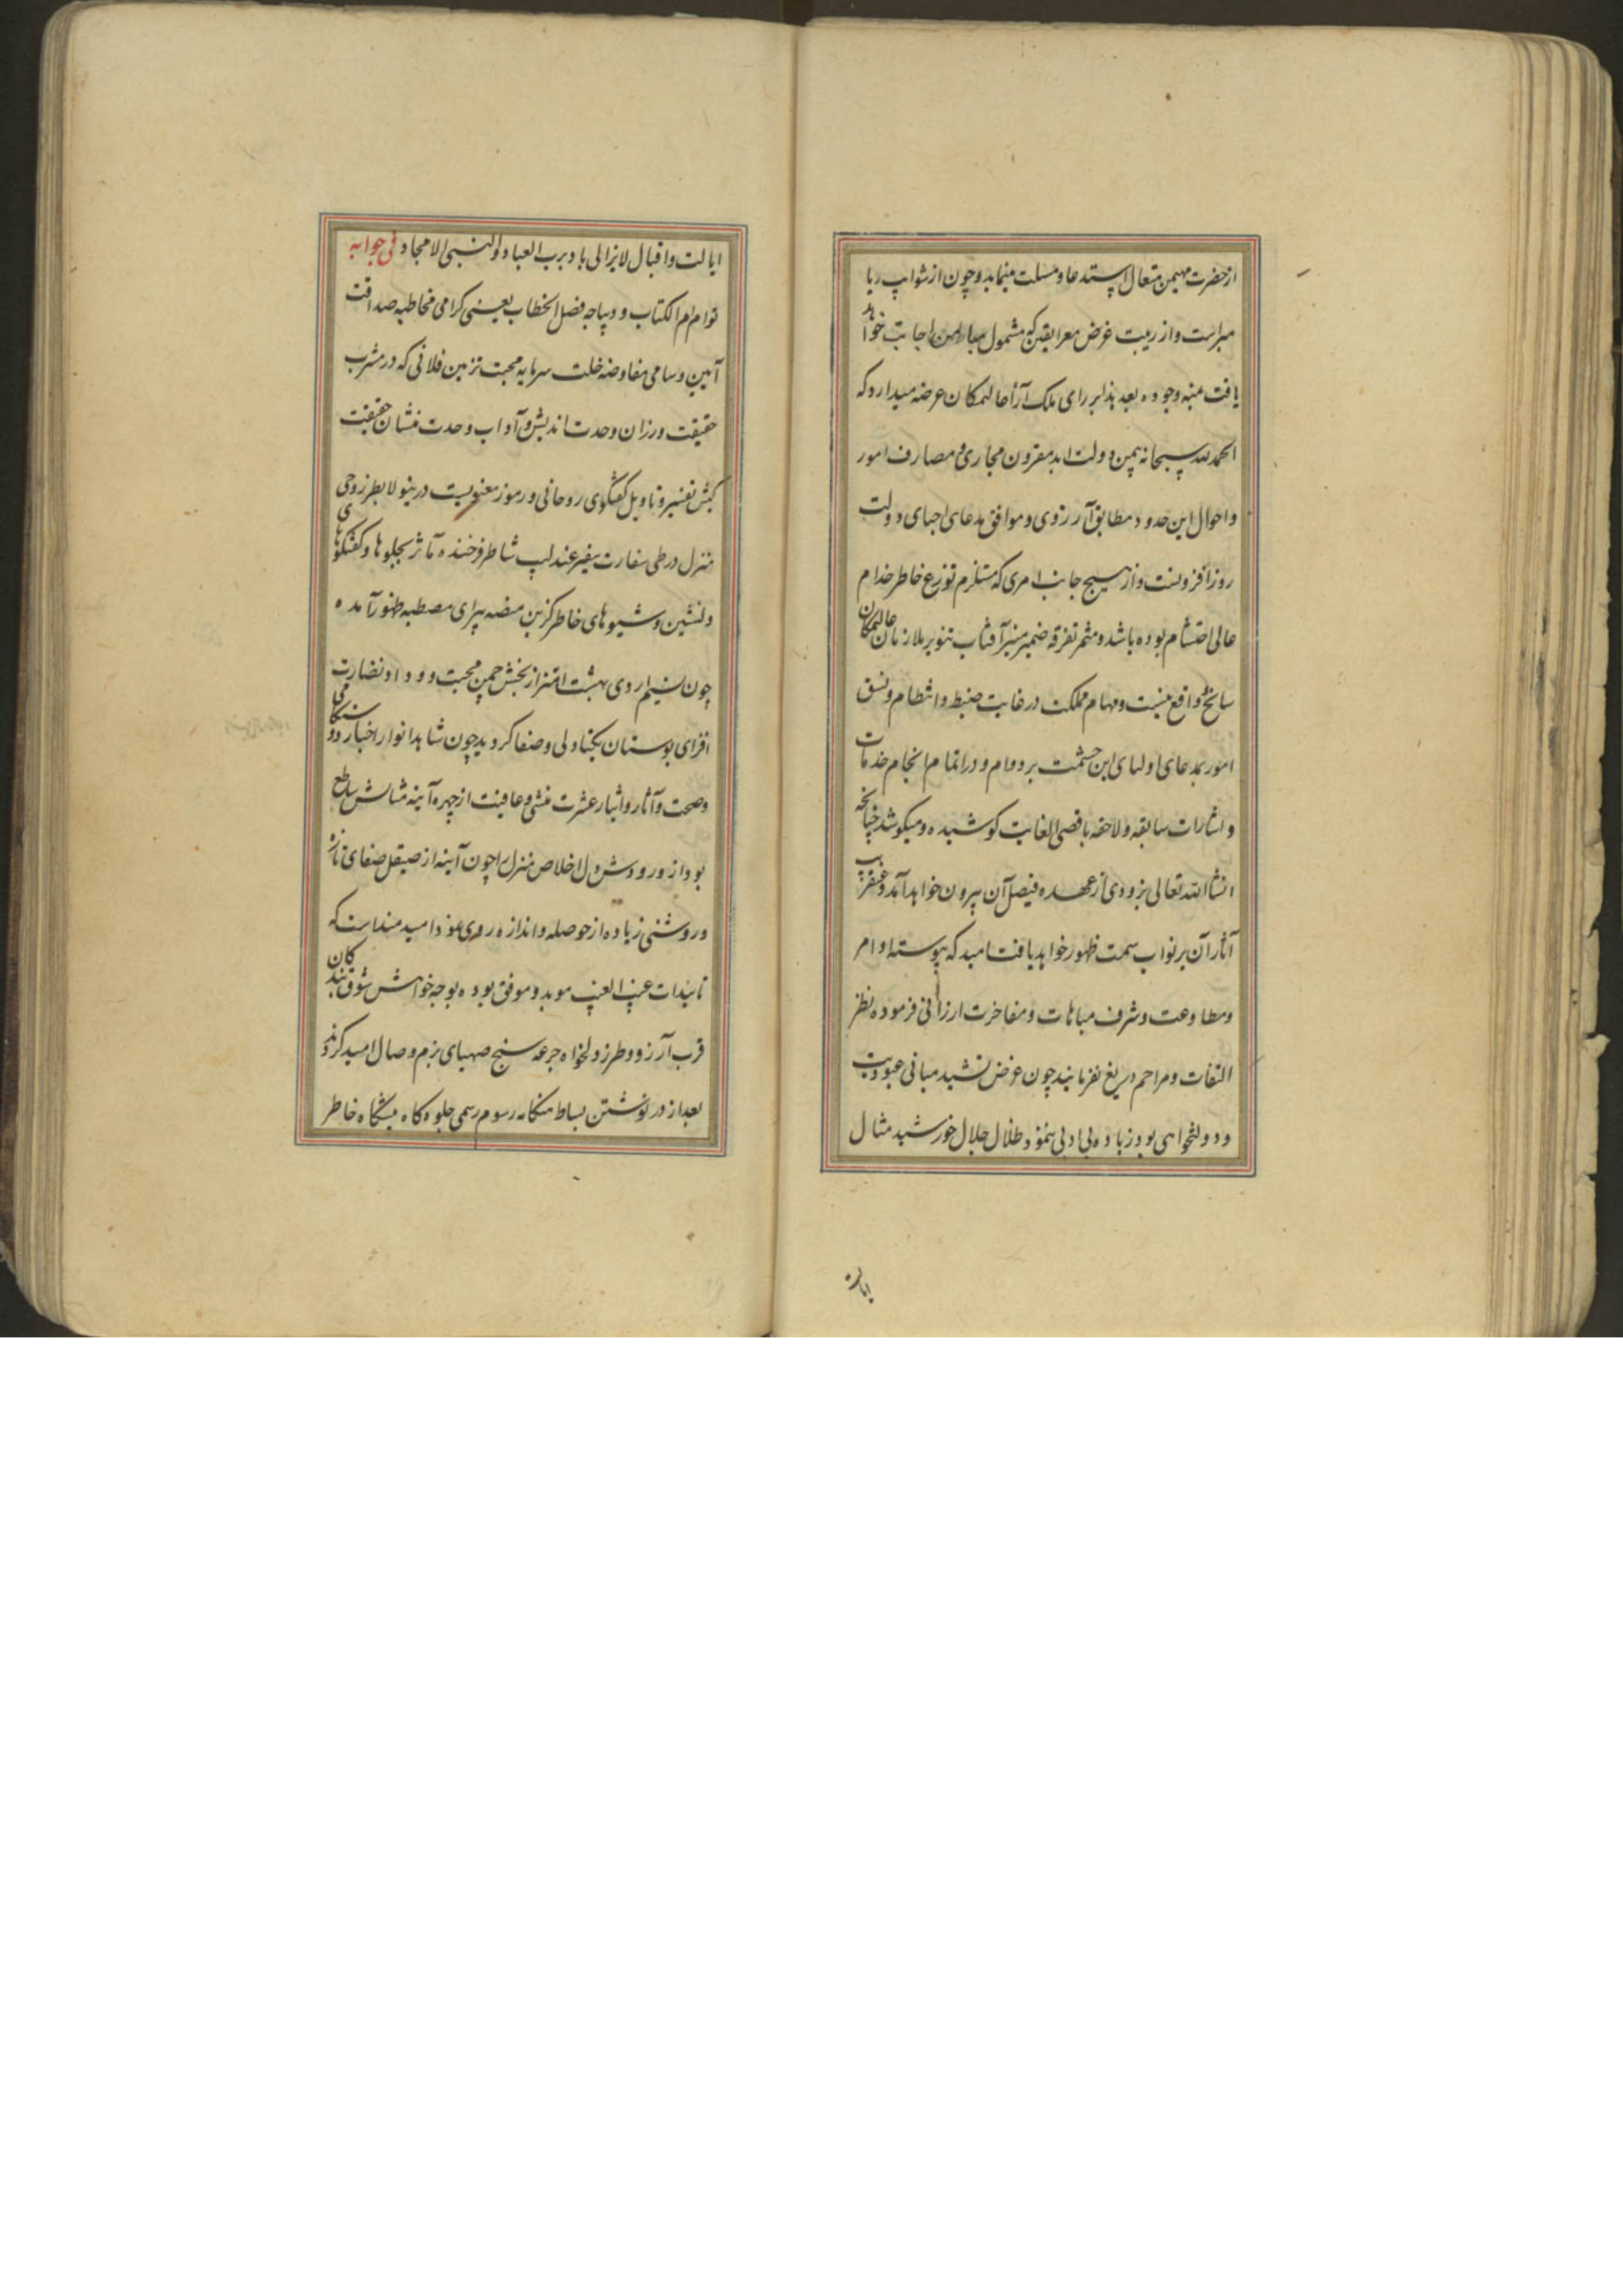 ازحضرت مهیمن متعال استدعا و مسلت مینماید و چون از شوایب ریا
مبراست و از ریبت غرض معرا یقین که مشمول میامن اجابت خواهد
یافت بمنه وجوده بعد هذا بر رای ملک آرا عالیمکان عرضه میدارد که
الحمدلله سبحانه بیمن دولت ابد مقرون مجاری و مصارف امور
و احوال این حدود مطابق آرزوی و موافق مدعای احبای دولت
روزافزونست و از هیچ جانب امری که مستلزم توزع خاطر خدام
عالی احتشام بوده باشد و مثمر تفرقه ضمیر منیر آفتاب تنویر ملازمان عالیمکان
سانح و واقع نیست و مهام مملکت در غایت ضبط و انتظام و نسق
امور بمدعای اولیای این حشمت بر دوام و در اتمام و انجام خدمات
و اشارات سابقه و لاحقه باقصی الغایت کوشیده و میکوشد چنانچه
انشاالله تعالی بزودی از عهده فیصل آن بیرون خواهد آمد و عنقریب
آثار آن بر نواب سمت ظهور خواهد یافت امید که پیوسته اوامر
ومطاوعت و شرف مباهات و مفاخرت ارزانی فرموده نظر
التفات و مراحم دریغ نفرمایند چون غرض تشیید مبانی عبودیت
و دولتخواهی بود زیاده بی ادبی ننمود ظلال جلال خورشید مثال
ایالت
ایالت و اقبال لایزالی باد برب العباد و النبی الامجاد فی جوابه
توام ام الکتاب و دیباجه فصل الخطاب یعنی کرامی مخاطبه صداقت
آیین و سامی مفاوضه خلت سرمایه محبت تزیین فلانی که در مشرب
حقیقت ورزان وحدت اندیش و آداب وحدت منشان حقیقت
کیش تفسیر و تاویل کفتکوی روحانی و رموز معنویست درینولا بطرز وحی
منزل در طی سفارت سفیر عندلیب شاطر فرخنده مآثر بجلوها و کفتکوهای
دلنشین و شیوهای خاطرکزین منصه پیرای مصطبه ظهور آمده
چون نسیم اردی بهشت اهتزاز بخش چمن محبت و وداد و نضارت
افزای بوستان یکتا دلی و صفا کردید چون شاهد انوار اخبار دوستکامی
وصحت و آثار و اثبار عشرت منشی و عافیت از چهره آینه مثالش ساطع
بود از ورودش دل اخلاص منزل را چون آینه از صیقل صفای تازه
و روشنی زیاده از حوصله و اندازه روی نمود امید منداست که
تاییدات غیب الغیب موید و موفق بوده بوجه خواهش شوق بندکان
قرب آرزو و طرز دلخواه جرعه سنج صهبای بزم وصال امید کردند
بعد از درنوشتن بساط هنکامه رسوم رسمی جلوه کاه پیشکاه خاطر